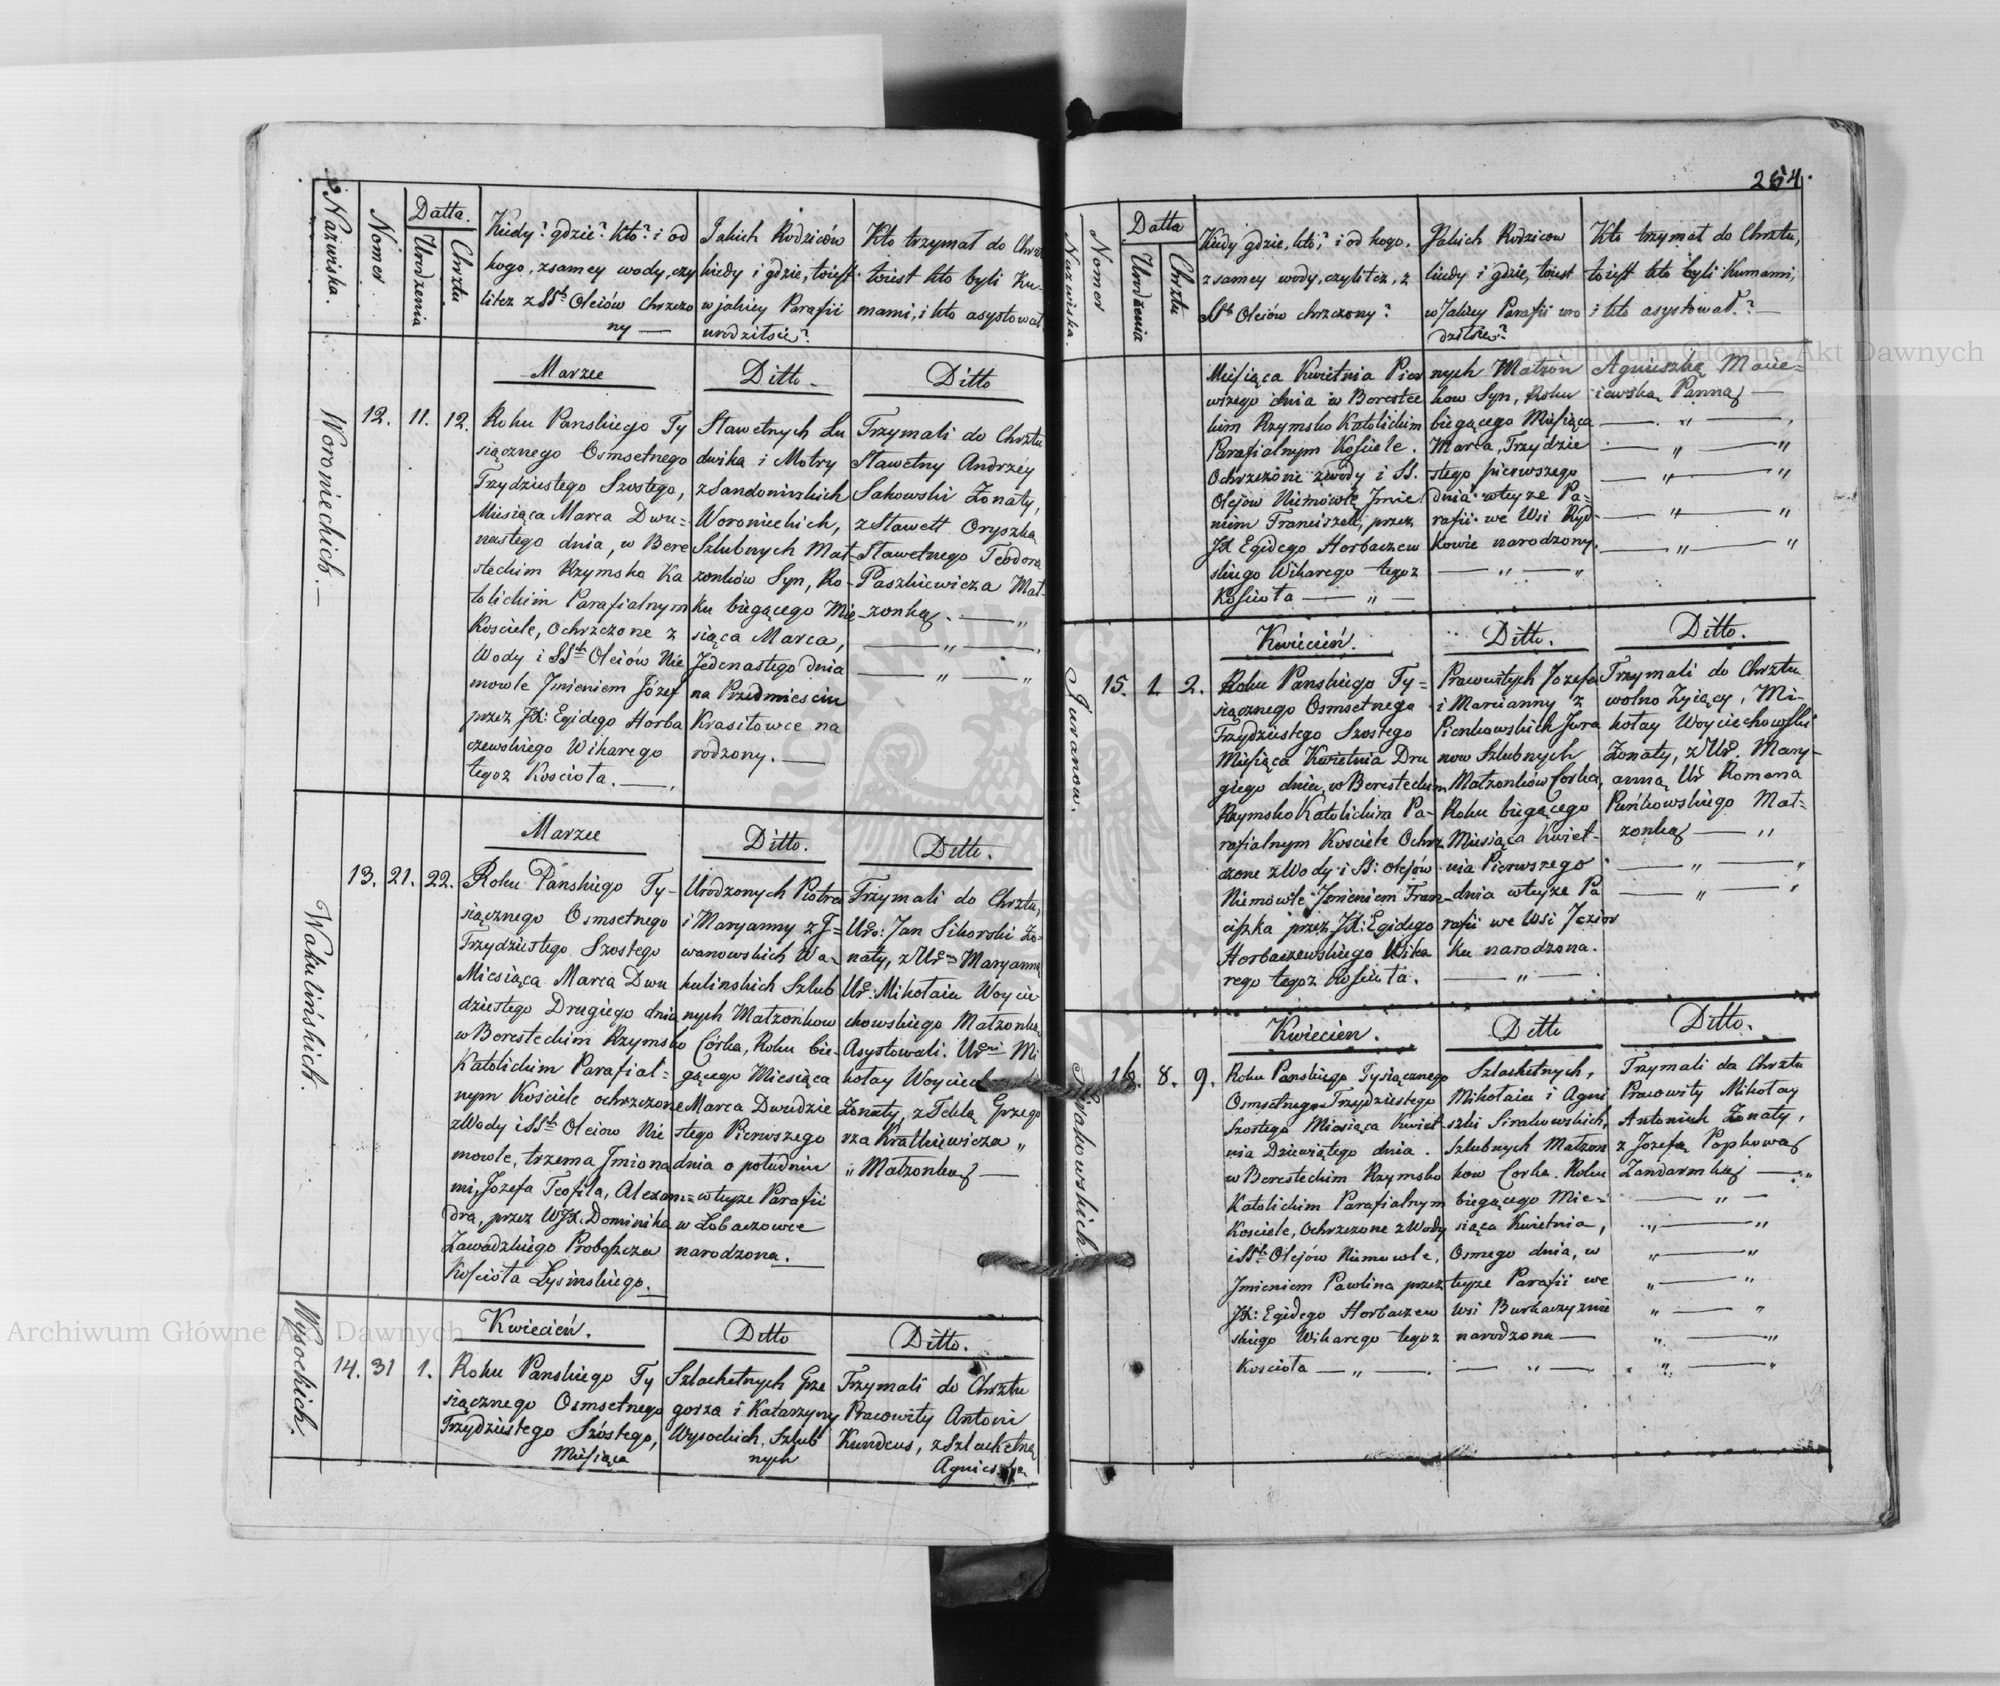 Nazwiska.
Nomer
Datta.
Urodzenia
Chrztu
Kiedy? gdzie? kto? i od
kogo, zsamey wody, czy
litez z SSth Oleiów chrzczo
ny —
Jakich Rodziców
kiedy i gdzie, toiest
w jakiey Parafii
urodziłsie?
Kto trzymał do Chrz
toiest kto byli Ku-
mami, i kto asystował
Woronieckich. —
12. 11. 12.
Marzec
Roku Panskiego Ty
siącznego Osmsetnego
Trzydziestego Szostego,
Miesiąca Marca Dwu=
nastego dnia, w Bere
steckim Rzymsko Ka
tolickim Parafialnym
Kosciele, ochrzczone z
Wody i SSth Oleiów Nie
mowle Jmieniem Józef
przez JX: Egidego Horba
czewskiego Wikarego
tegoz Koscioła. —
Ditto.
Sławetnych Lu
dwika i Motry
z Sandomirskich
Woronieckich,
Szlubnych Mał-
zonków Syn, Ro-
ku biegącego Mie
siąca Marca,
Jedenastego dnia
na Przedmiesciu
Krasiłowce na
rodzony. —
Ditto
Trzymali do Chrztu
Sławetny Andrzéy
Sakowski Żonaty,
z Sławett Oryszką
Sławetnego Teodora
Paszkiewicza Mał-
zonką. — „
— „ —
— „ — „
Wakulińskich.
13. 21. 22.
Marzec
Roku Panskiego Ty-
siącznego Osmsetnego
Trzydziestego Szostego
Miesiąca Marca Dwu
dziestego Drugiego dnia
w Beresteckim Rzymsko
Katolickim Parafial=
nym Kościele ochrzczone
z Wody i SSth Oleiow Nie
mowle, trzema Jmiona
mi, Józefa Teofila, Alexan=
dra, przez WJX. Dominika
Zawadzkiego Proboszcza
Kościoła Łysinskiego.
Ditto.
Urodzonych Piotra
i Maryanny z J=
wanowskich Wa-
kulinskich Szlub
nych Małzonkow
Córka, Roku bie-
gącego Miesiąca
Marca Dwudzie
stego Pierwszego
dnia o południu
w teyze Parafii
w Łobaczowce
narodzona. —
Ditto.
Trzymali do Chrztu,
Uro: Jan Sikorski Żo-
naty, z Urną Maryanną
Ur: Mikołaia Woycie
chowskiego Małzonką
Asystowali. Urni Mi
kołay Woyciech
Żonaty, z Teklą Grzego
rza Kratkiewicza „
„ Małzonką —
Wysockich.
14. 31 1.
Kwiecień.
Roku Panskiego Ty
siącznego Osmsetnego
Trzydziestego Szóstego,
Miesiąca
Ditto
Szlachetnych Grze
gorza i Katarzyny
Wysockich, Szlub
nych
Ditto.
Trzymali do Chrztu
Pracowity Antoni
Kundeus, z Szlachetną
Agnieszką
254.
Nazwiska
Nomer
Datta
Urodzenia
Chrztu
Kiedy gdzie, kto? i od kogo,
z samey wody, czylitez, z
SSth Oleiów chrzczony?
Jakich Rodzicow
kiedy i gdzie, toiest
w Jakiey Parafii uro
dziłsie?
Kto trzymał do Chrztu,
toiest kto byli Kumami,
i kto asystował? —
Miesiąca Kwietnia Pier
wszego dnia w Berestec
kim Rzymsko Katolickim
Parafialnym Kościele.
Ochrzczone z wody i SS.
Olejow Niemowle Jmie
niem Franciszek, przez
JX Egidego Horbaczew
skiego Wikarego tegoz
Kościoła — „ —
nych Małzon
kow Syn, Roku
biegącego Miesiąca
Marca, Trzydzie
stego pierwszego
dnia w teyze Pa=
rafii we Wsi Ryd-
kowie narodzony.
— „ — „
Agnieszką Macie=
iewską Panną —
— „ —
— „ — „
— „ — „
— „ — „
— „ — „
Juranow.
15. 1. 2.
Kwiecień.
Roku Panskiego Ty=
siącznego Osmsetnego
Trzydziestego Szostego
Miesiąca Kwietnia Dru
giego dnia, w Beresteckim
Rzymsko Katolickim Pa-
rafialnym Kościele Ochrz
czone z Wody i SS: olejów
Niemowle Jmieniem Fran-
ciszka przez JX: Egidego
Horbaczewskiego Wika
rego tegoz Kościoła.
Ditto.
Pracowitych Jozefa
i Marcianny z
Pienkowskich Jura
now Szlubnych
Małzonków Corka,
Roku biegącego
Miesiąca Kwiet-
nia Pierwszego
dnia w teyze Pa
rafii we Wsi Jezior
ku narodzona.
— „ —
Ditto.
Trzymali do Chrztu
wolno Żyiący, Mi-
kołay Woyciechowski
Żonaty, z Ur. Mary-
anną Ur Romana
Puńkowskiego Mał-
zonką — „
— „ — „
— „ — „
Sirakowskich.
16. 8. 9.
Kwiecien.
Roku Panskiego Tysiącznego
Osmsetnego Trzydziestego
Szostego Miesiąca Kwiet-
nia Dziewiątego dnia.
w Beresteckim Rzymsko
Katolickim Parafialnym
Kosciele, Ochrzczone z Wody
i SSth Olejów Niemowle,
Jmieniem Pawlina przez
JX: Egidego Horbaczew
skiego Wikarego tegoz
Kosciola — „ —.
Ditto
Szlachetnych,
Mikołaia i Agni
szki Sirakowskich,
Szlubnych Małzon
kow Corka. Roku
biegącego Mie-
siąca Kwietnia,
Osmego dnia, w
teyze Parafii we
Wsi Burkaczyznie
narodzona —
— „ —
Ditto.
Trzymali do Chrztu
Pracowity Mikołay
Antoniuk Żonaty,
z Jozefą Popkową
Żandarmką — „
— „ —
„ — „
„ — „
„ — „
„ — „
„ — „
„ — „
Archiwum Główne Akt Dawnych
Archiwum Główne Akt Dawnych